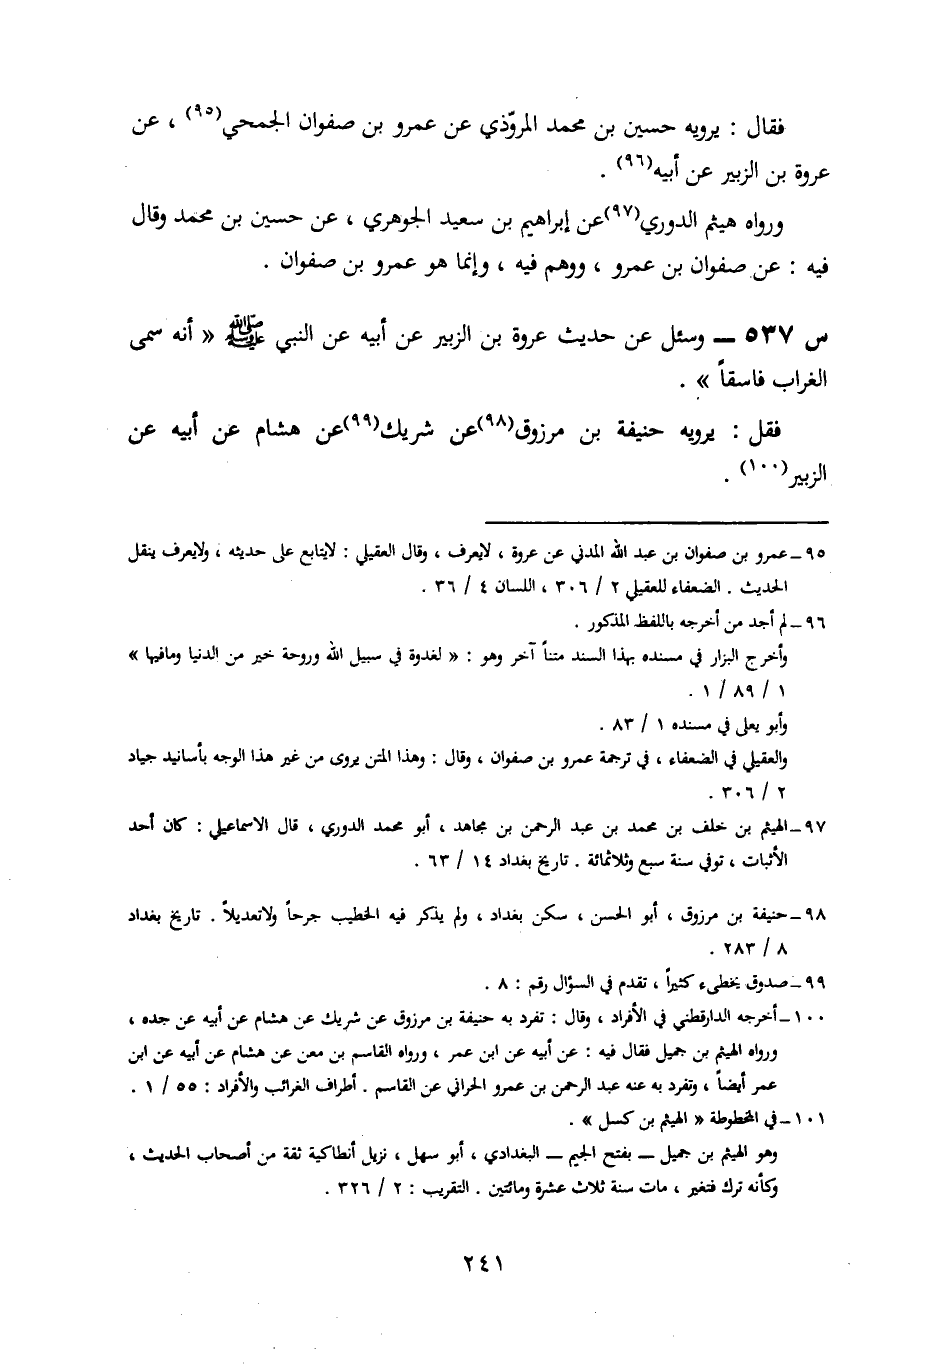 فقال : يرويه حسين بن محمد المروّذي عن عمرو بن صفوان الجمحي(٩٥) ، عن
عروة بن الزبير عن أبيه(٩٦) .
ورواه هيثم الدوري(٩٧)عن إبراهيم بن سعيد الجوهري ، عن حسين بن محمد وقال
فيه : عن صفوان بن عمرو ، ووهم فيه ، وإنما هو عمرو بن صفوان .
س ٥٣٧ ــ وسئل عن حديث عروة بن الزبير عن أبيه عن النبي ﷺ « أنه سمى
الغراب فاسقاً » .
فقل : يرويه حنيفة بن مرزوق(٩٨)عن شريك(٩٩)عن هشام عن أبيه عن
الزبير(١٠٠) .
٩٥ ــ عمرو بن صفوان بن عبد الله المدني عن عروة ، لايعرف ، وقال العقيلي : لايتابع على حديثه ، ولايعرف ينقل
الحديث . الضعفاء للعقيلي ٢ / ٣٠٦ ، اللسان ٤ / ٣٦ .
٩٦ ــ لم أجد من أخرجه باللفظ المذكور .
وأخرج البزار في مسنده بهذا السند متناً آخر وهو : « لغدوة في سبيل الله وروحة خير من الدنيا ومافيها »
١ / ٨٩ / ١ .
وأبو يعلى في مسنده ١ / ٨٣ .
والعقيلي في الضعفاء ، في ترجمة عمرو بن صفوان ، وقال : وهذا المتن يروى من غير هذا الوجه بأسانيد جياد
٢ / ٣٠٦ .
٩٧ ــ الهيثم بن خلف بن محمد بن عبد الرحمن بن مجاهد ، أبو محمد الدوري ، قال الاسماعيلي : كان أحد
الأثبات ، توفي سنة سبع وثلاثمائة . تاريخ بغداد ١٤ / ٦٣ .
٩٨ ــ حنيفة بن مرزوق ، أبو الحسن ، سكن بغداد ، ولم يذكر فيه الخطيب جرحاً ولاتعديلاً . تاريخ بغداد
٨ / ٢٨٣ .
٩٩ ــ صدوق يخطىء كثيراً ، تقدم في السؤال رقم : ٨ .
١٠٠ ــ أخرجه الدارقطني في الأفراد ، وقال : تفرد به حنيفة بن مرزوق عن شريك عن هشام عن أبيه عن جده ،
ورواه الهيثم بن جميل فقال فيه : عن أبيه عن ابن عمر ، ورواه القاسم بن معن عن هشام عن أبيه عن ابن
عمر أيضاً ، وتفرد به عنه عبد الرحمن بن عمرو الحراني عن القاسم . أطراف الغرائب والأفراد : ٥٥ / ١ .
١٠١ ــ في المخطوطة « الهيثم بن كسل » .
وهو الهيثم بن جميل ــ بفتح الجيم ــ البغدادي ، أبو سهل ، نزيل أنطاكية ثقة من أصحاب الحديث ،
وكأنه ترك فتغير ، مات سنة ثلاث عشرة ومائتين . التقريب : ٢ / ٣٢٦ .
٢٤١